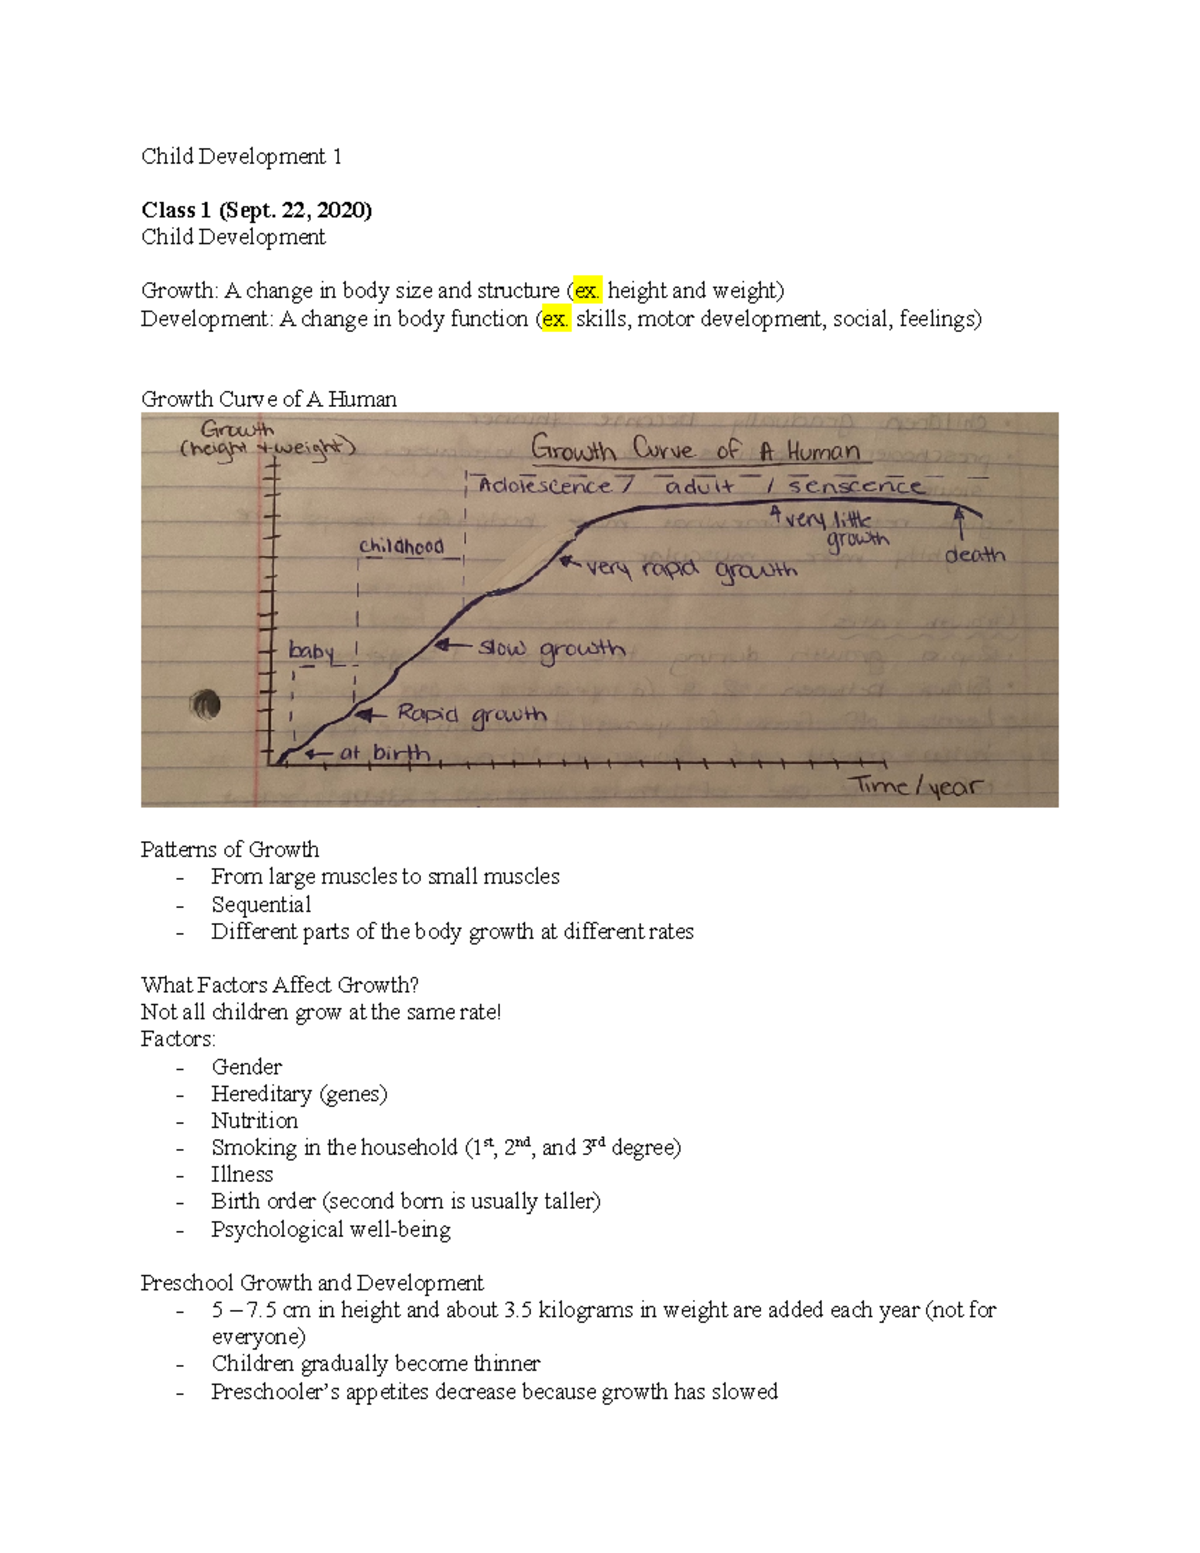 Child Development 1
Class 1 (Sept. 22, 2020)
Child Development
Growth: A change in body size and structure (ex. height and weight)
Development: A change in body function (ex. skills, motor development, social, feelings)
Growth Curve of A Human
Growth
(height + weight)
Growth Curve of A Human
Adolescence / adult / senscence
very little
growth
childhood
death
very rapid growth
baby
slow growth
Rapid growth
at birth
Time / year
Patterns of Growth
- From large muscles to small muscles
- Sequential
- Different parts of the body growth at different rates
What Factors Affect Growth?
Not all children grow at the same rate!
Factors:
- Gender
- Hereditary (genes)
- Nutrition
- Smoking in the household (1st, 2nd, and 3rd degree)
- Illness
- Birth order (second born is usually taller)
- Psychological well-being
Preschool Growth and Development
- 5 – 7.5 cm in height and about 3.5 kilograms in weight are added each year (not for
everyone)
- Children gradually become thinner
- Preschooler’s appetites decrease because growth has slowed